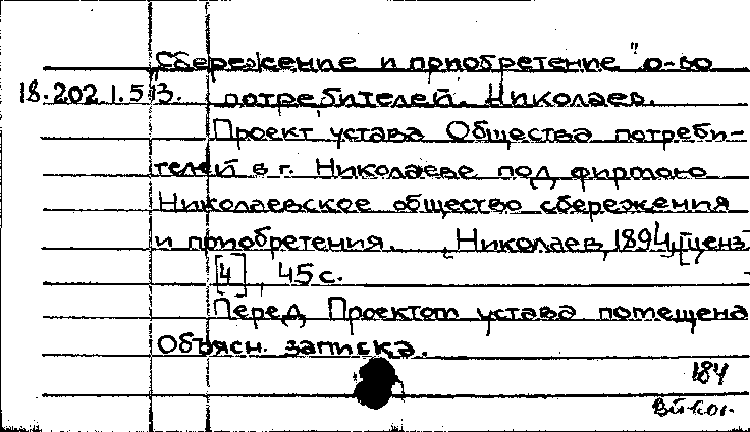 "Сбережение и приобретение" о-во
18.202.1.513. потребителей. Николаев.
Проект устава Общества потреби-
телей в г. Николаеве под фирмою
Николаевское общество сбережения
и приобретения. Николаев, 1894, [ценз
[4], 45 с.
Перед Проектом устава помещена
Объясн. записка.
184